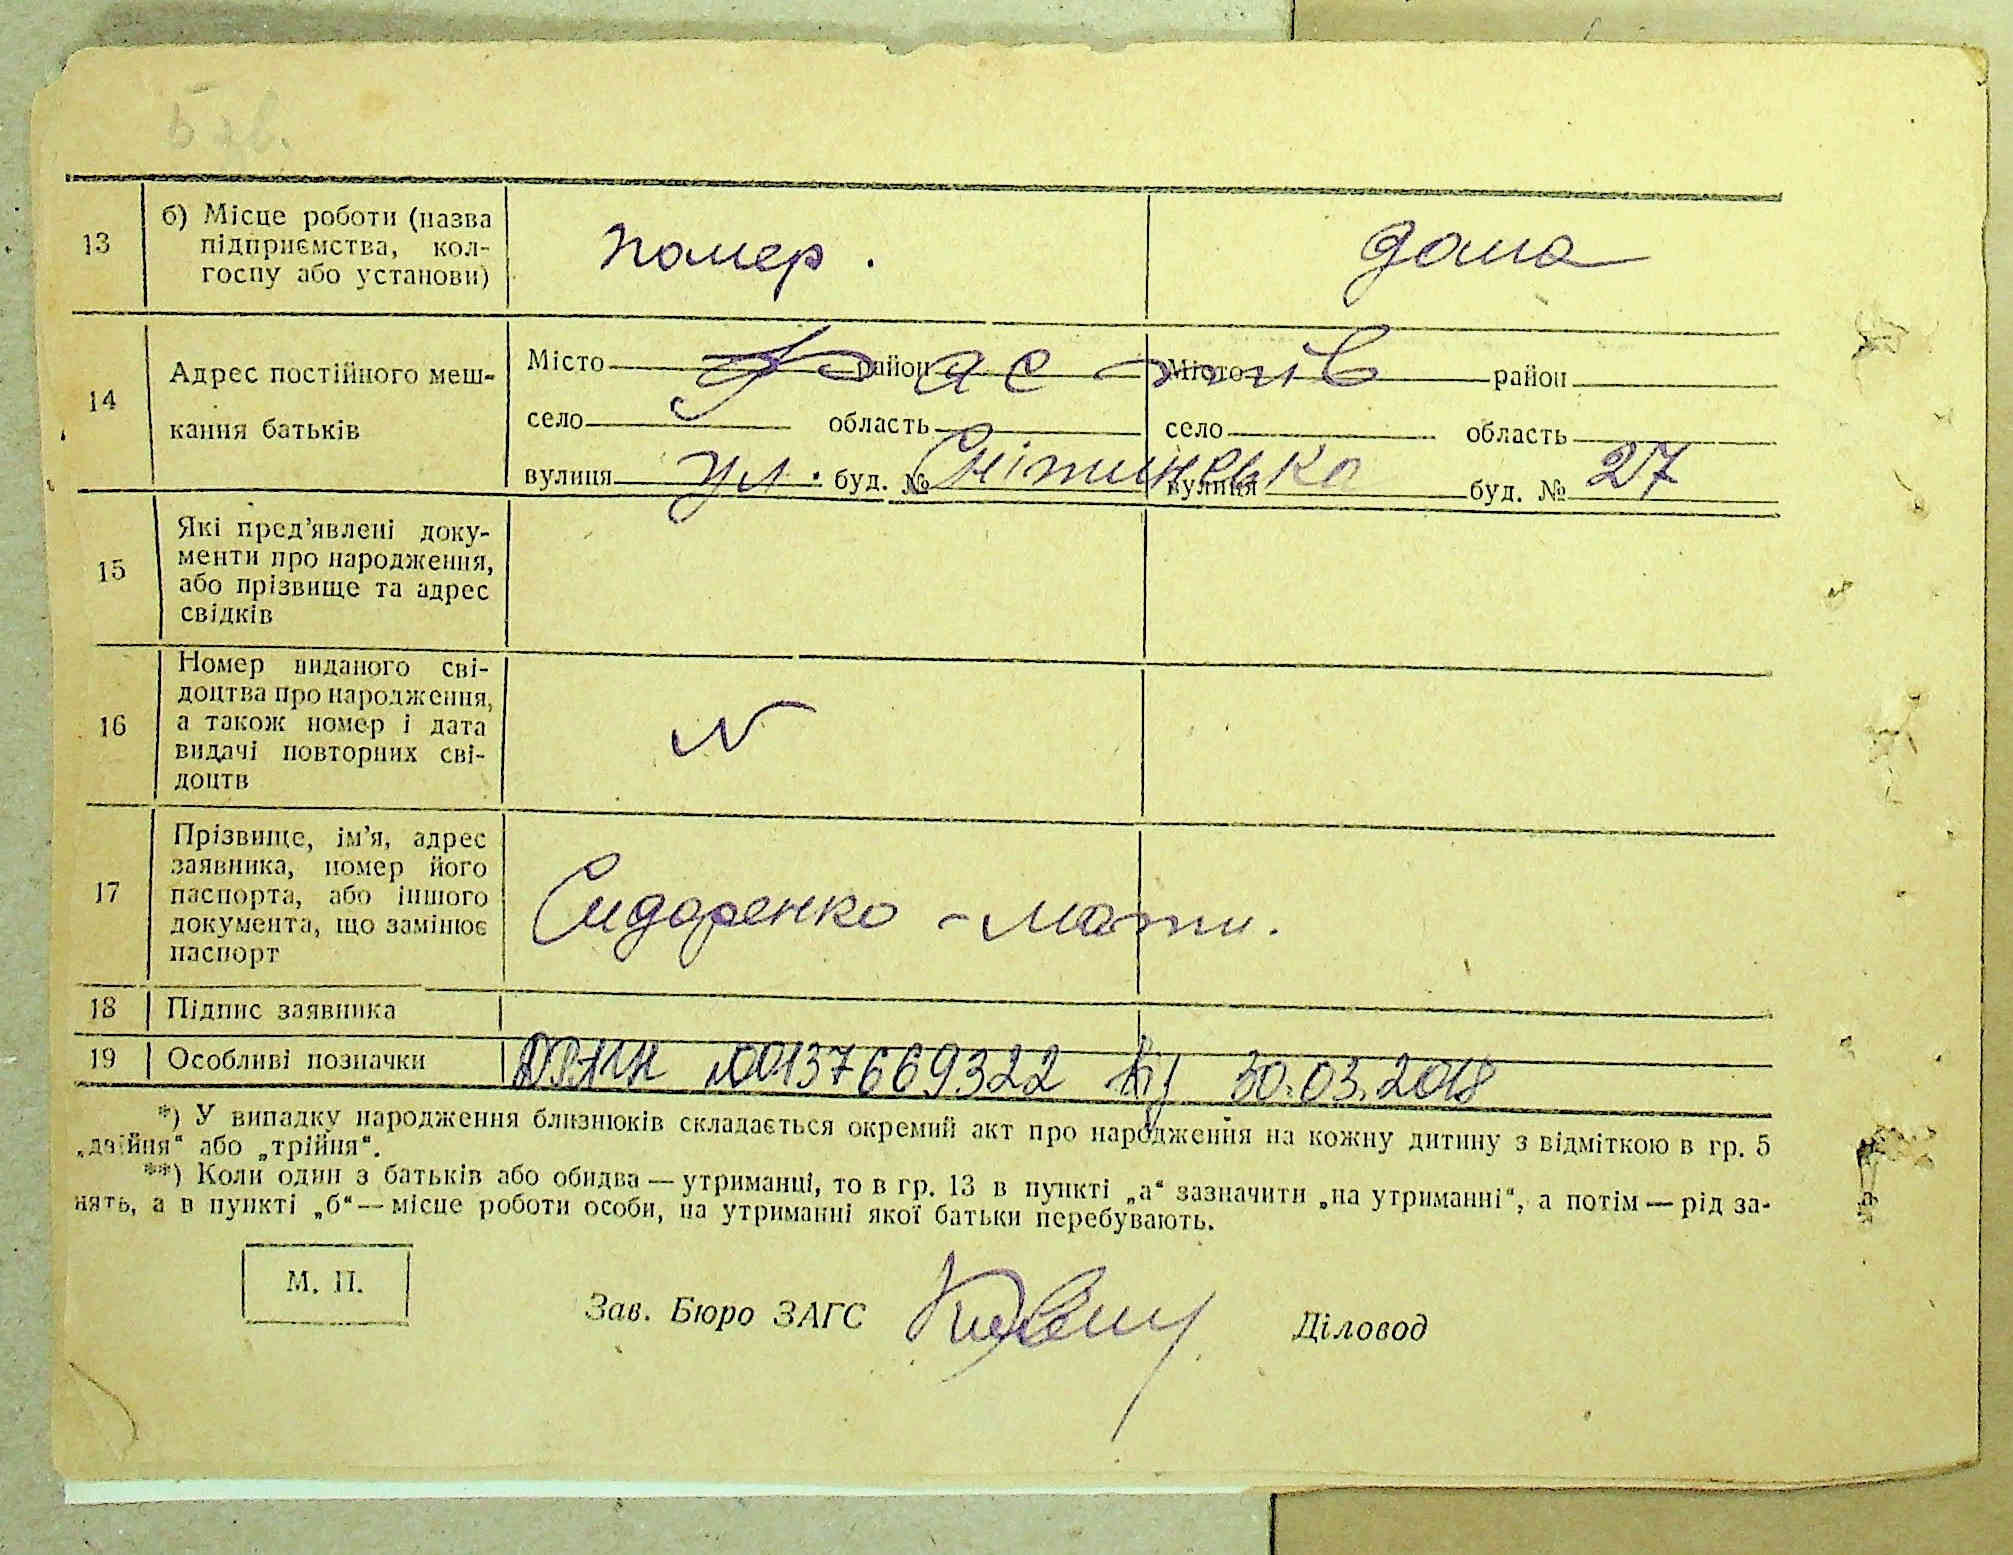 13
б) Місце роботи (назва
підприємства, кол-
госпу або установи)
помер.
дома
14
Адрес постійного меш-
кання батьків
Місто район Місто район
Фастів
село область село область
вулиця буд. № вулиця буд. №
ул. Снітинська 27
15
Які пред’явлені доку-
менти про народження,
або прізвище та адрес
свідків
16
Номер виданого сві-
доцтва про народження,
а також номер і дата
видачі повторних сві-
доцтв
N
17
Прізвище, ім’я, адрес
заявника, номер його
паспорта, або іншого
документа, що замінює
паспорт
Сидоренко - мати.
18 Підпис заявника
19 Особливі позначки
№00137669322 30.03.2018
*) У випадку народження близнюків складається окремий акт про народження на кожну дитину з відміткою в гр. 5
„двійня“ або „трійня“.
**) Коли один з батьків або обидва — утриманці, то в гр. 13 в пункті „а“ зазначити „на утриманні“, а потім — рід за-
нять, а в пункті „б“ — місце роботи особи, на утриманні якої батьки перебувають.
М. П.
Зав. Бюро ЗАГС
Діловод